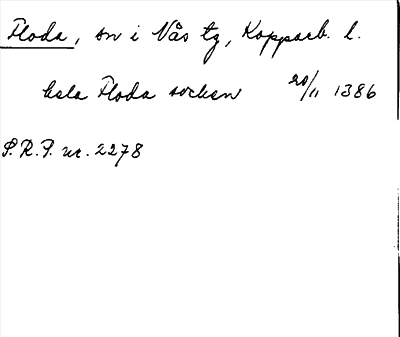 Floda, sn i Nås tg, Kopparb. l.
hela Floda socken 20/11 1386
S.R.P. nr. 2278